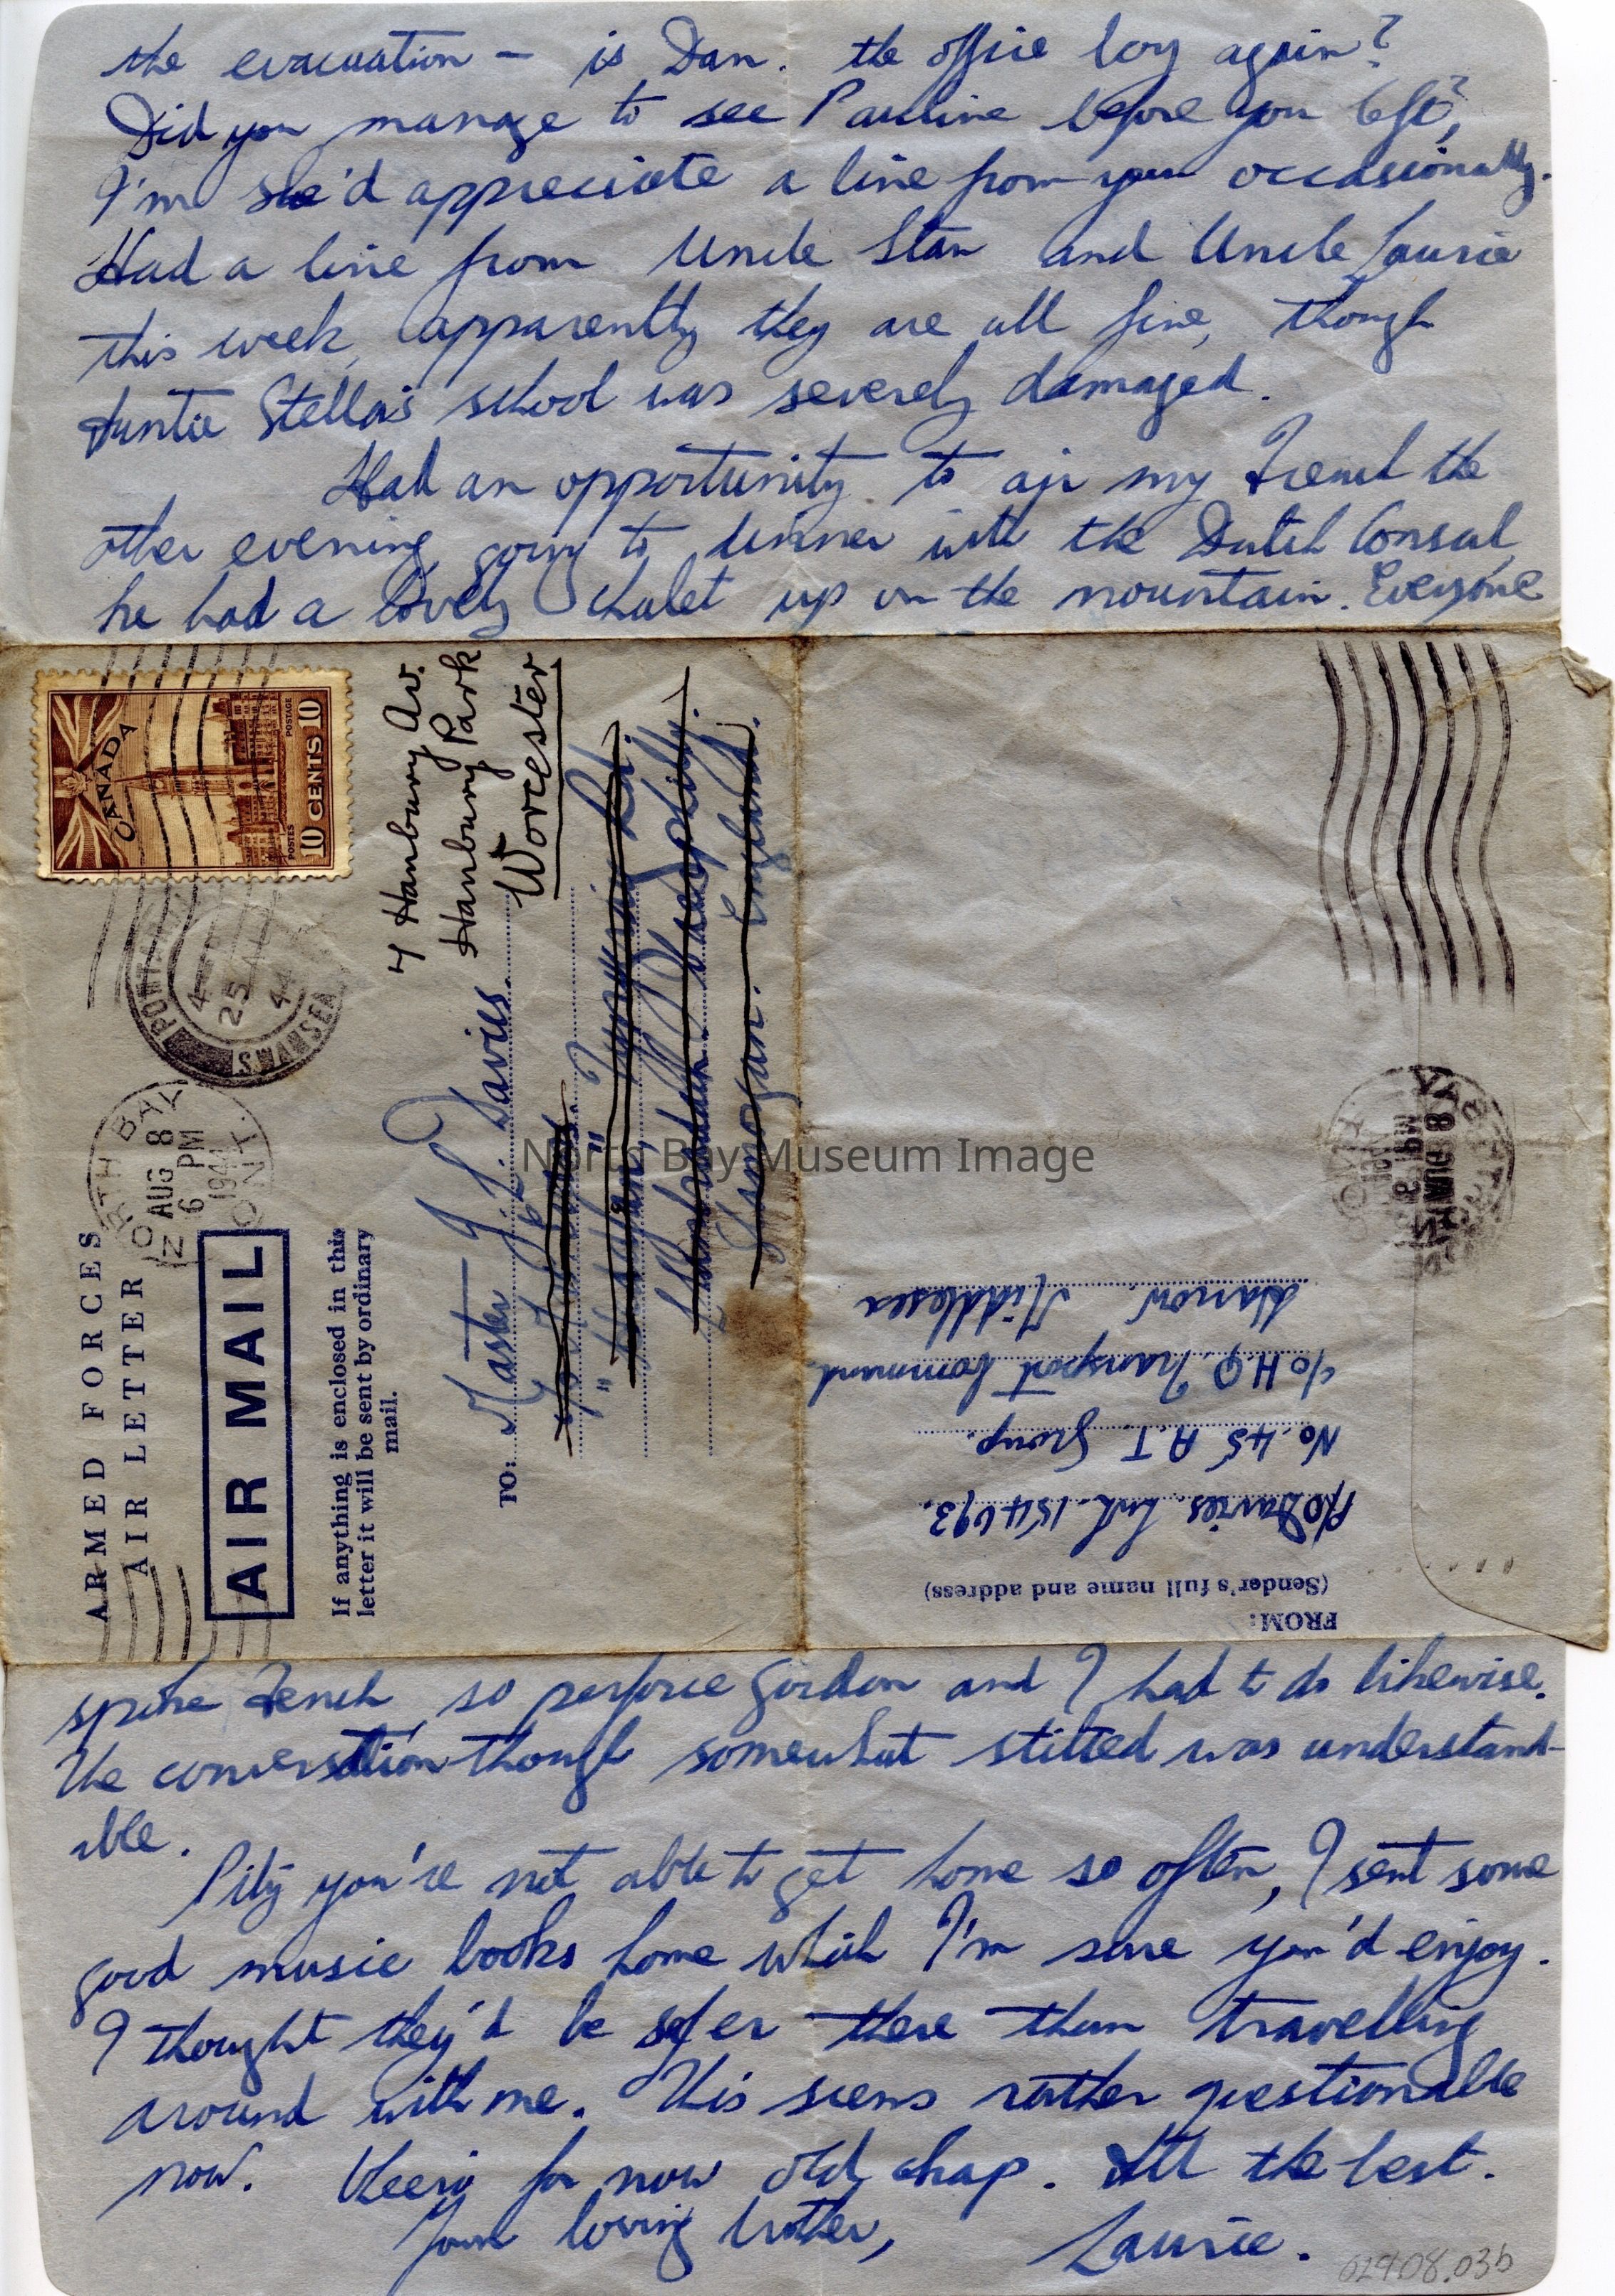 the evacuation – is Dan. the office boy again?
Did you manage to see Pauline before you left?,
I'm she'd appreciate a line from you occasionally.
Had a line from Uncle Stan and Uncle Laurie
this week, apparently they are all fine, though
Auntie Stella's school was severely damaged.
Had an opportunity to air my French the
other evening, going to dinner with the Dutch Consul,
he had a lovely chalet up on the mountain. Everyone
CANADA
POSTES POSTAGE
10 CENTS 10
4 25 44
NORTH BAY
AUG 8
6 PM
1944
ONT.
ARMED FORCES
AIR LETTER
AIR MAIL
If anything is enclosed in this
letter it will be sent by ordinary
mail.
7 Hanbury Av.
Hanbury Park
Worcester
TO: Master J. L. Davies.
Rd.
Glamorgan. England.
FROM:
(Sender's full name and address)
P/O Davies. 154693.
No. 45 A.T. Group.
c/o H.Q. Transport Command.
Harrow. Middlesex
North Bay Museum Image
spoke French, so perforce Gordon and I had to do likewise.
The conversation though somewhat stilted was understand-
able.
Pity you're not able to get home so often, I sent some
good music books home which I'm sure you'd enjoy.
I thought they'd be safer there than travelling
around with me. This seems rather questionable
now. Cheerio for now old chap. All the best.
Your loving brother,
Laurie.